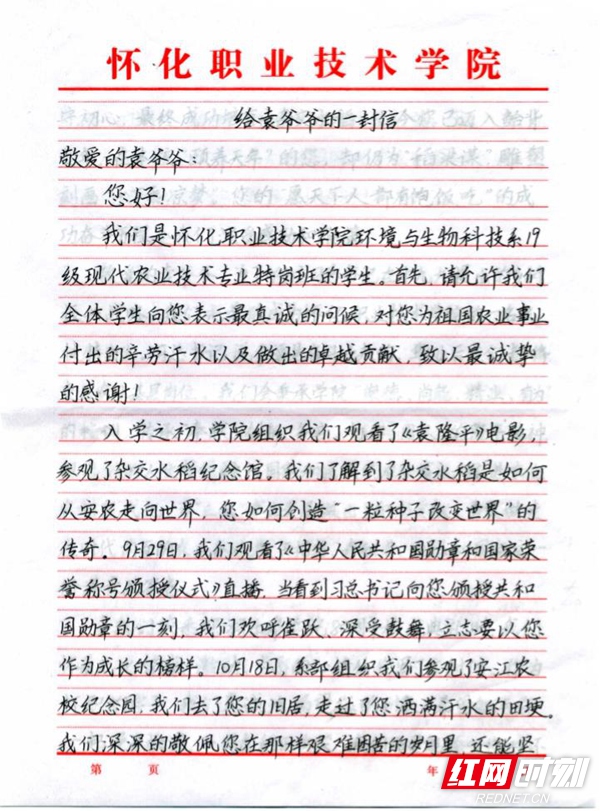 怀化职业技术学院
给袁爷爷的一封信
敬爱的袁爷爷：
您好！
我们是怀化职业技术学院环境与生物科技系19
级现代农业技术专业特岗班的学生。首先，请允许我们
全体学生向您表示最真诚的问候，对您为祖国农业事业
付出的辛劳汗水以及做出的卓越贡献，致以最诚挚
的感谢！
入学之初，学院组织我们观看了《袁隆平》电影，
参观了杂交水稻纪念馆。我们了解到了杂交水稻是如何
从安农走向世界，您如何创造“一粒种子改变世界”的
传奇。9月29日，我们观看了《中华人民共和国勋章和国家荣
誉称号颁授仪式》直播，当看到习总书记向您颁授共和
国勋章的一刻，我们欢呼雀跃、深受鼓舞，立志要以您
作为成长的榜样。10月18日，系部组织我们参观了安江农
校纪念园，我们去了您的旧居，走过了您洒满汗水的田埂。
我们深深的敬佩您在那样艰难困苦的岁月里，还能坚
第 页 年
红网时刻
REDNET.CN